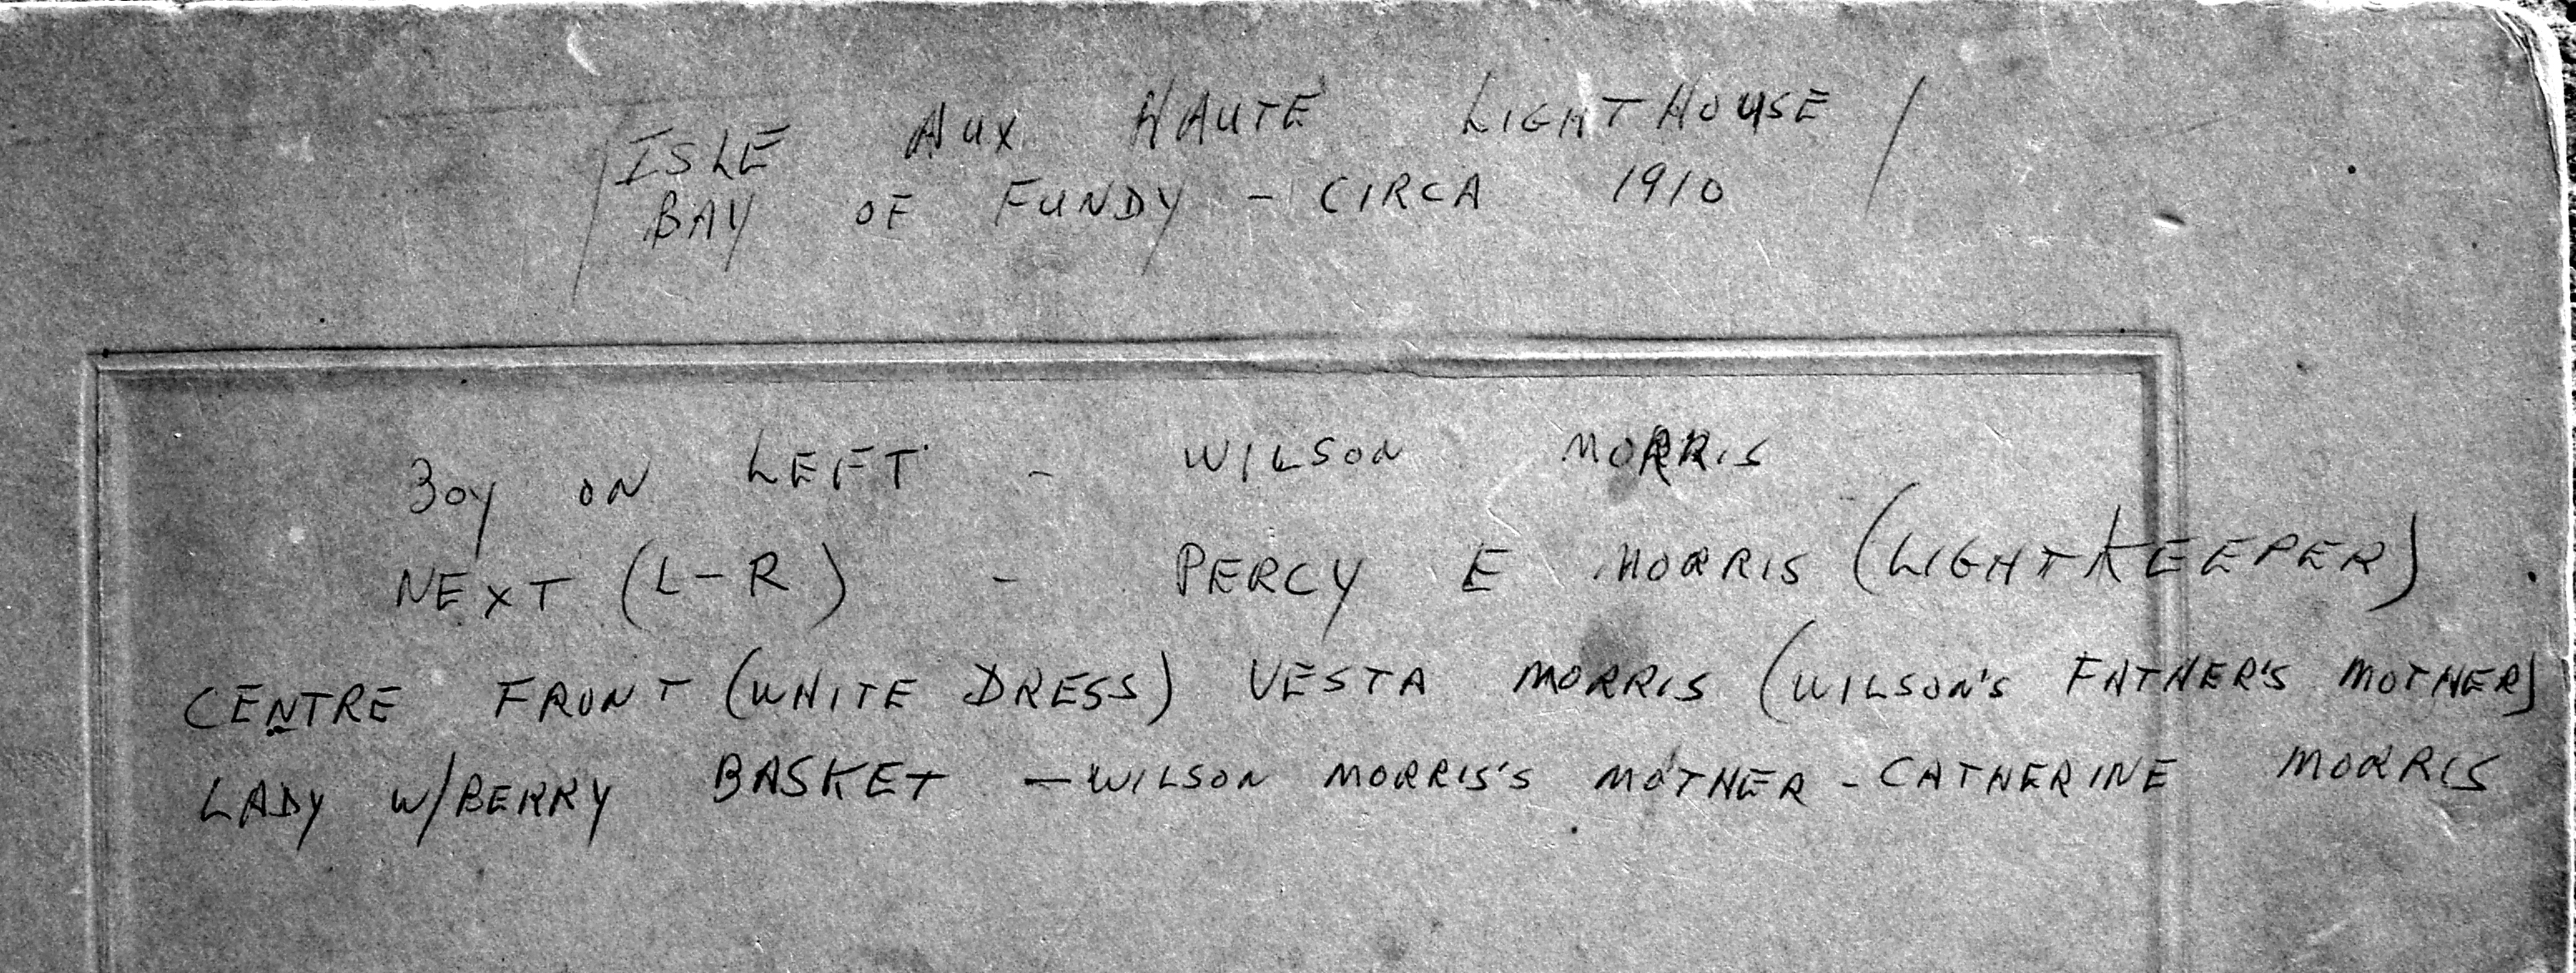 ISLE AUX HAUTE LIGHTHOUSE
BAY OF FUNDY - CIRCA 1910
BOY ON LEFT - WILSON MORRIS
NEXT (L-R) - PERCY E MORRIS (LIGHTKEEPER)
CENTRE FRONT (WHITE DRESS) VESTA MORRIS (WILSON'S FATHER'S MOTHER)
LADY W/BERRY BASKET - WILSON MORRIS'S MOTHER - CATHERINE MORRIS